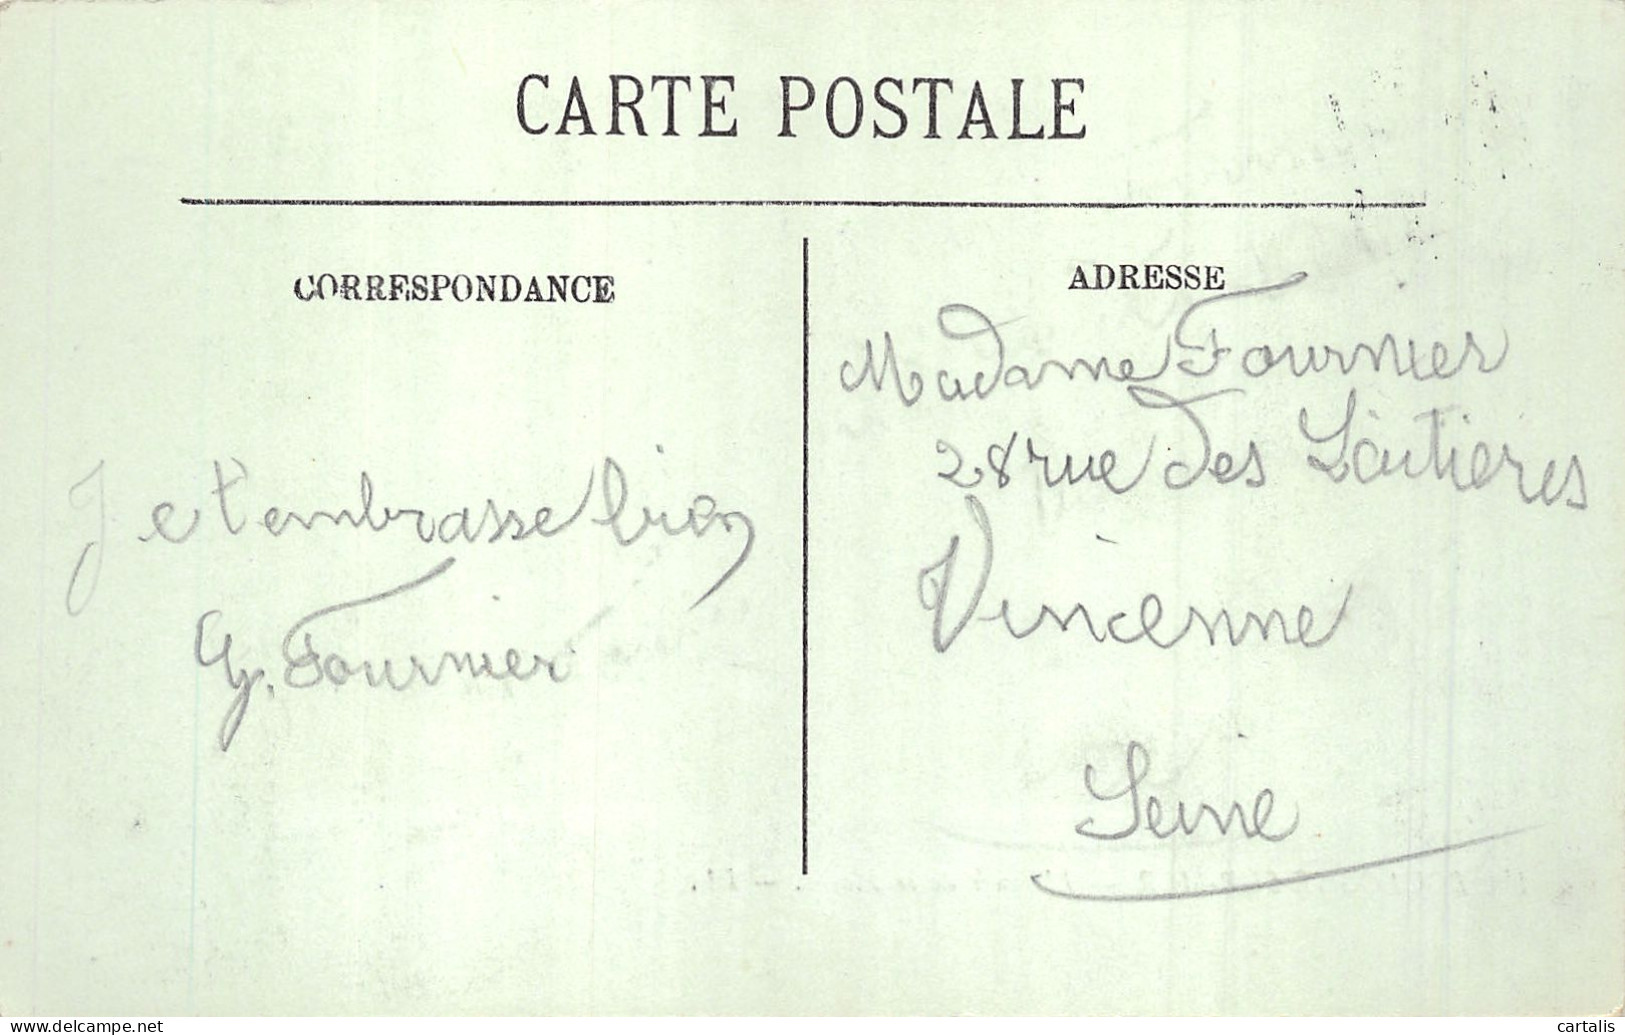 CARTE POSTALE
CORRESPONDANCE
Je t'embrasse bien
G. Fournier
ADRESSE
Madame Fournier
28 rue des
Vincenne
Seine
cartalis
www.delcampe.net